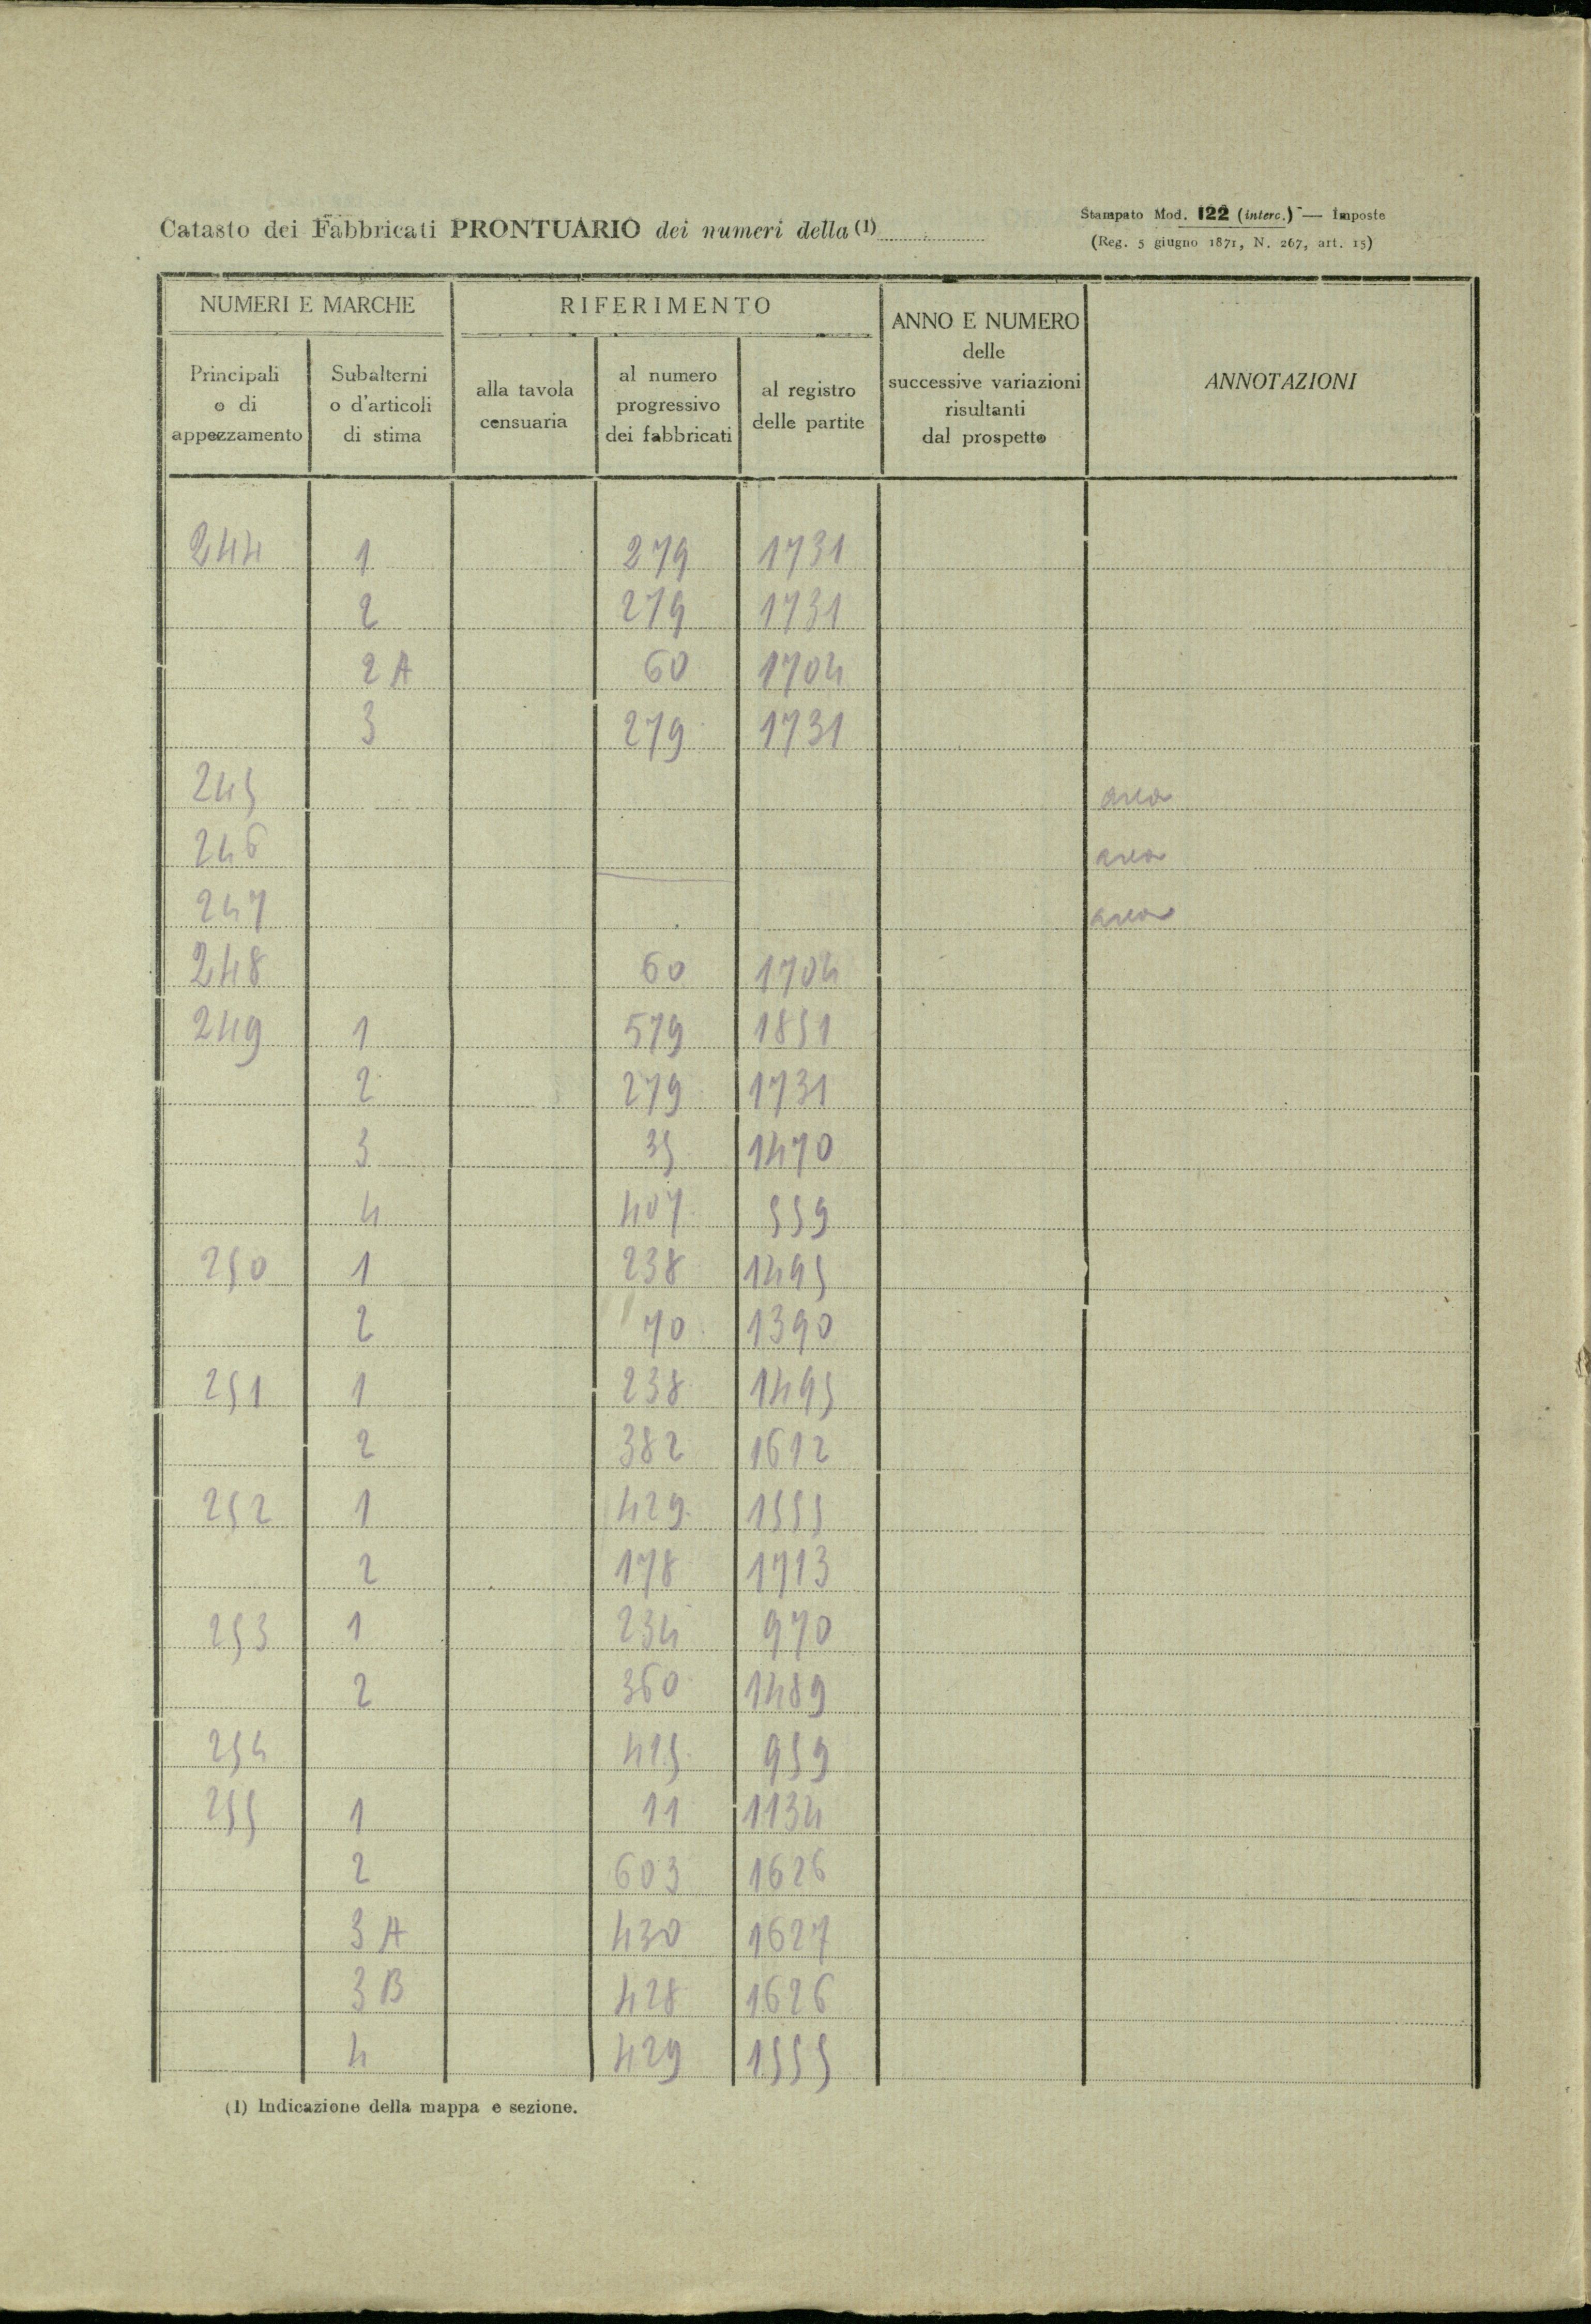 Catasto dei Fabbricati PRONTUARIO dei numeri della (1)
Stampato Mod. 122 (interc.) — Imposte
(Reg. 5 giugno 1871, N. 267, art. 15)
NUMERI E MARCHE RIFERIMENTO ANNO E NUMERO delle successive variazioni risultanti dal prospetto ANNOTAZIONI
Principali o di appezzamento Subalterni o d'articoli di stima alla tavola censuaria al numero progressivo dei fabbricati al registro delle partite
244 1 279 1731
2 279 1731
2 A 60 1704
3 279 1731
245 area
246 area
247 area
248 60 1704
249 1 579 1851
2 279 1731
3 35 1470
4 407 559
250 1 238 1495
2 70 1390
251 1 238 1495
2 382 1612
252 1 429 1555
2 178 1713
253 1 234 970
2 360 1489
254 415 959
255 1 11 1134
2 603 1626
3 A 430 1627
3 B 428 1626
4 429 1555
(1) Indicazione della mappa e sezione.